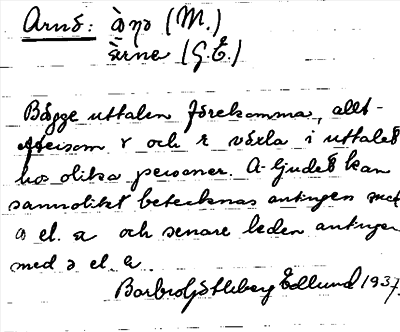 Arnö: (M.)
ärne (G.E.)
Bägge uttalen förekomma, allt-
eftersom r och ɹ växla i uttalet
hos olika personer. A-ljudet kan
sannolikt betecknas antingen med
el. och senare leden antingen
med ə el. e.
Edlund 1937.